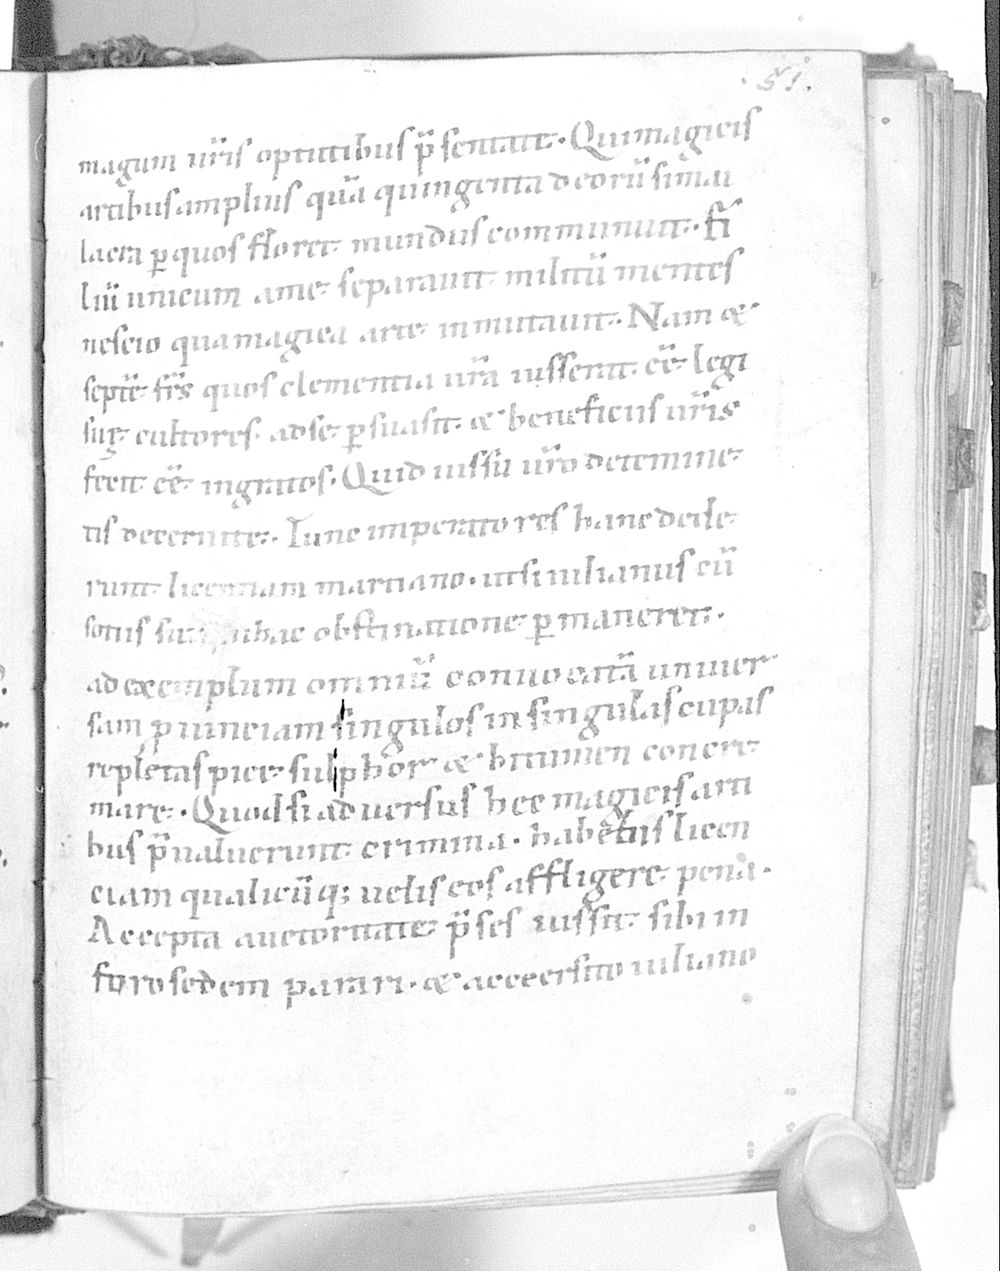 51.
magum ur̄is optutibus p̄sentate · Qui magicis
artibus amplius quā quingenta deorū simu
lacra ꝑ quos floret mundus comminuit · fi
liū unicum ame separauit militū mentes
nescio qua magica arte inmutauit · Nam &
septē fr̄s quos clementia ur̄a iusserat eē legi
suę cultores · adse ꝑsuasit & beneficiis ur̄is
fecit eē ingratos · Quid iussū ur̄o determine
tis decernite · Tunc imperatores hanc dede
runt licentiam martiano · ut si iulianus cū
sotiis suis inhac obstinatione ꝑmaneret ·
ad exemplum omniū conuocatā uniuer
sam ꝓuinciam singulos in singulas cupas
repletas pice sulphor & bitumen concre
mare · Quod si aduersus hec magicis arti
bus p̄ualuerunt crimina · habetis licen
ciam qualicūq; uelis eos affligere pena ·
Accepta auctoritate p̄ses iussit sibi in
foro sedem parari · & accersito iuliano